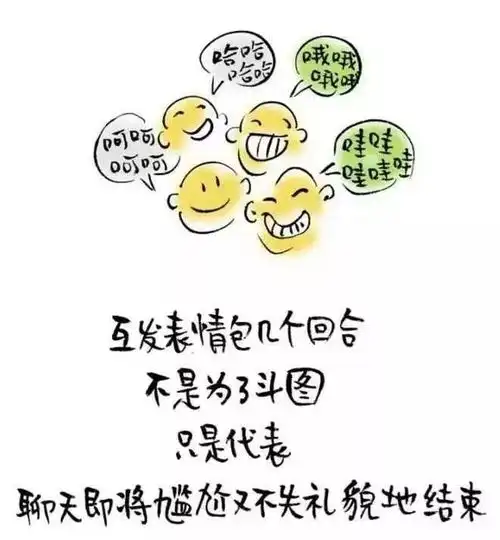 哈哈
哈哈
哦哦
哦哦
呵呵
呵呵
哇哇
哇哇哇
互发表情包几个回合
不是为了斗图
只是代表
聊天即将尴尬又不失礼貌地结束